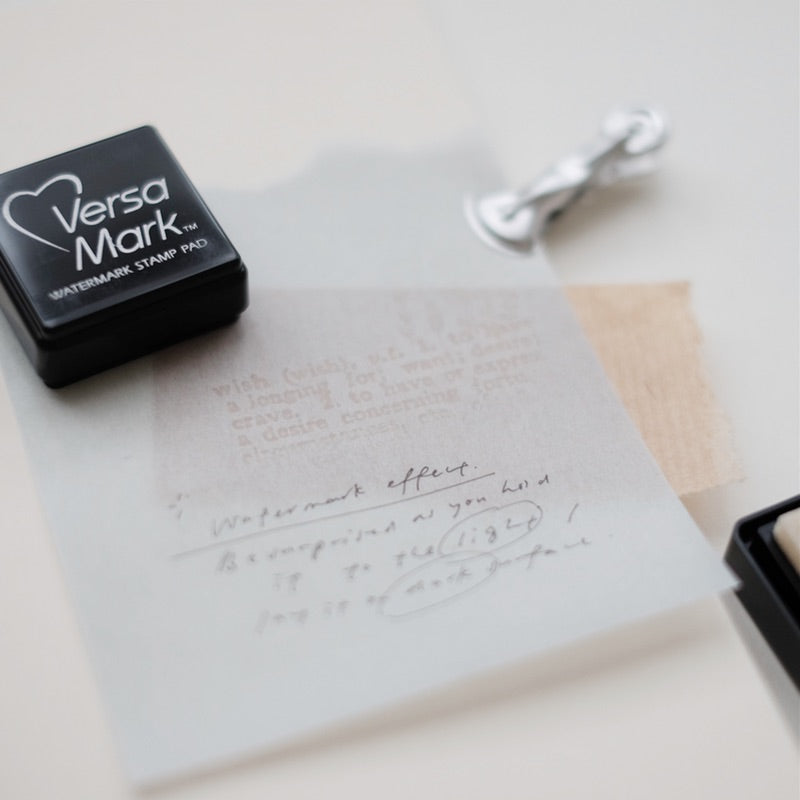 Versa
Mark™
WATERMARK STAMP PAD
wish (wish), v.t. 1. to have
a longing for; want; desire;
crave. 2. to have or express
a desire concerning
Watermark effect.
Be surprised as you hold
it to the light /
lay it on dark surface.